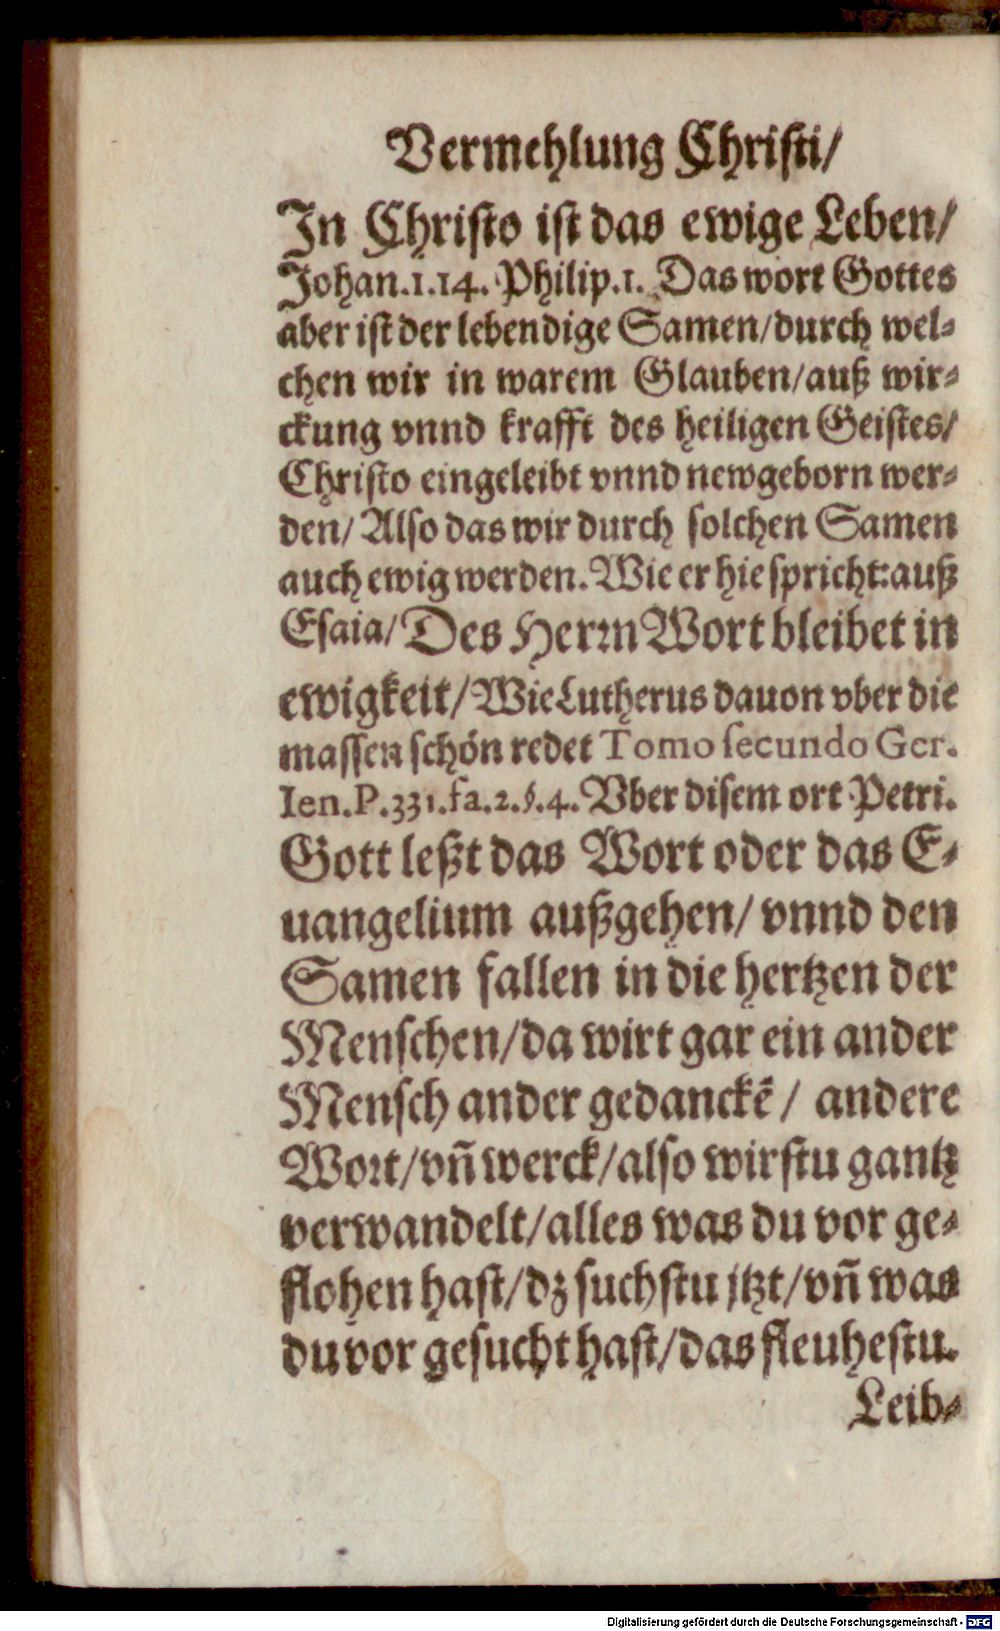 Vermehlung Christi/
In Christo ist das ewige Leben/
Johan.1.14. Philip.1. Das wort Gottes
aber ist der lebendige Samen/durch wel⸗
chen wir in warem Glauben/auß wir⸗
ckung vnnd krafft des heiligen Geistes/
Christo eingeleibt vnnd newgeborn wer⸗
den/ Also das wir durch solchen Samen
auch ewig werden. Wie er hie spricht:auß
Esaia/ Des Herrn Wort bleibet in
ewigkeit/ Wie Lutherus dauon vber die
massen schön redet Tomo secundo Ger.
Ien. P.331. fa.2.§.4. Vber disem ort Petri.
Gott leßt das Wort oder das E⸗
uangelium außgehen/ vnnd den
Samen fallen in die hertzen der
Menschen/da wirt gar ein ander
Mensch ander gedanckē/ andere
Wort/vñ werck/also wirstu gantz
verwandelt/alles was du vor ge⸗
flohen hast/dz suchstu jtzt/vñ was
du vor gesucht hast/das fleuhestu.
Leib⸗
Digitalisierung gefördert durch die Deutsche Forschungsgemeinschaft - DFG